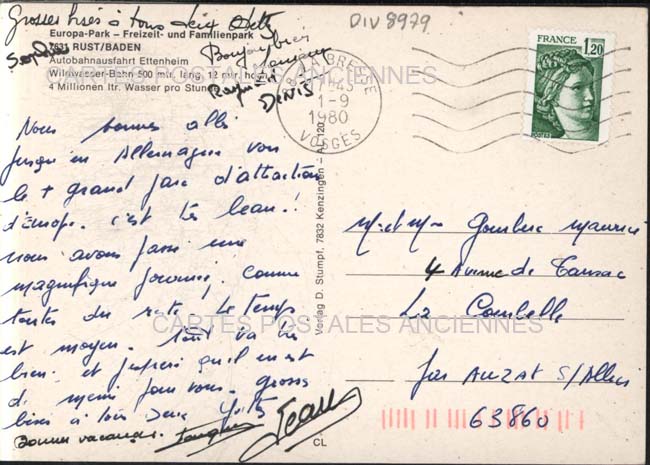 Grosses bises à tous deux
DIV 8979
Europa-Park – Freizeit- und Familienpark
7631 RUST/BADEN
Autobahnausfahrt Ettenheim
Wildwasser-Bahn 500 mtr. lang, 12 mtr. hoch
4 Millionen Ltr. Wasser pro Stunde
Sophie
Raymond
DENIS
LA BRESSE
17H45
1-9
1980
VOSGES
FRANCE
1,20
POSTES
Nous sommes allés
jusqu'en Allemagne voir
le + grand parc d'attraction
d'Europe. c'est très beau!
nous avons passé une
magnifique journée, comme
toutes du reste! le temps
est moyen. tout va très
bien. et j'espère qu'il en est
de même pour vous. grosses
bises à tous deux
Bonnes vacances.
Jean
Verlag D. Stumpf, 7832 Kenzingen
CL
M. et Me Maurice
4 Avenue de
La Combelle
par AUZAT S/Allier
63860
CARTES POSTALES ANCIENNES
CARTES POSTALES ANCIENNES